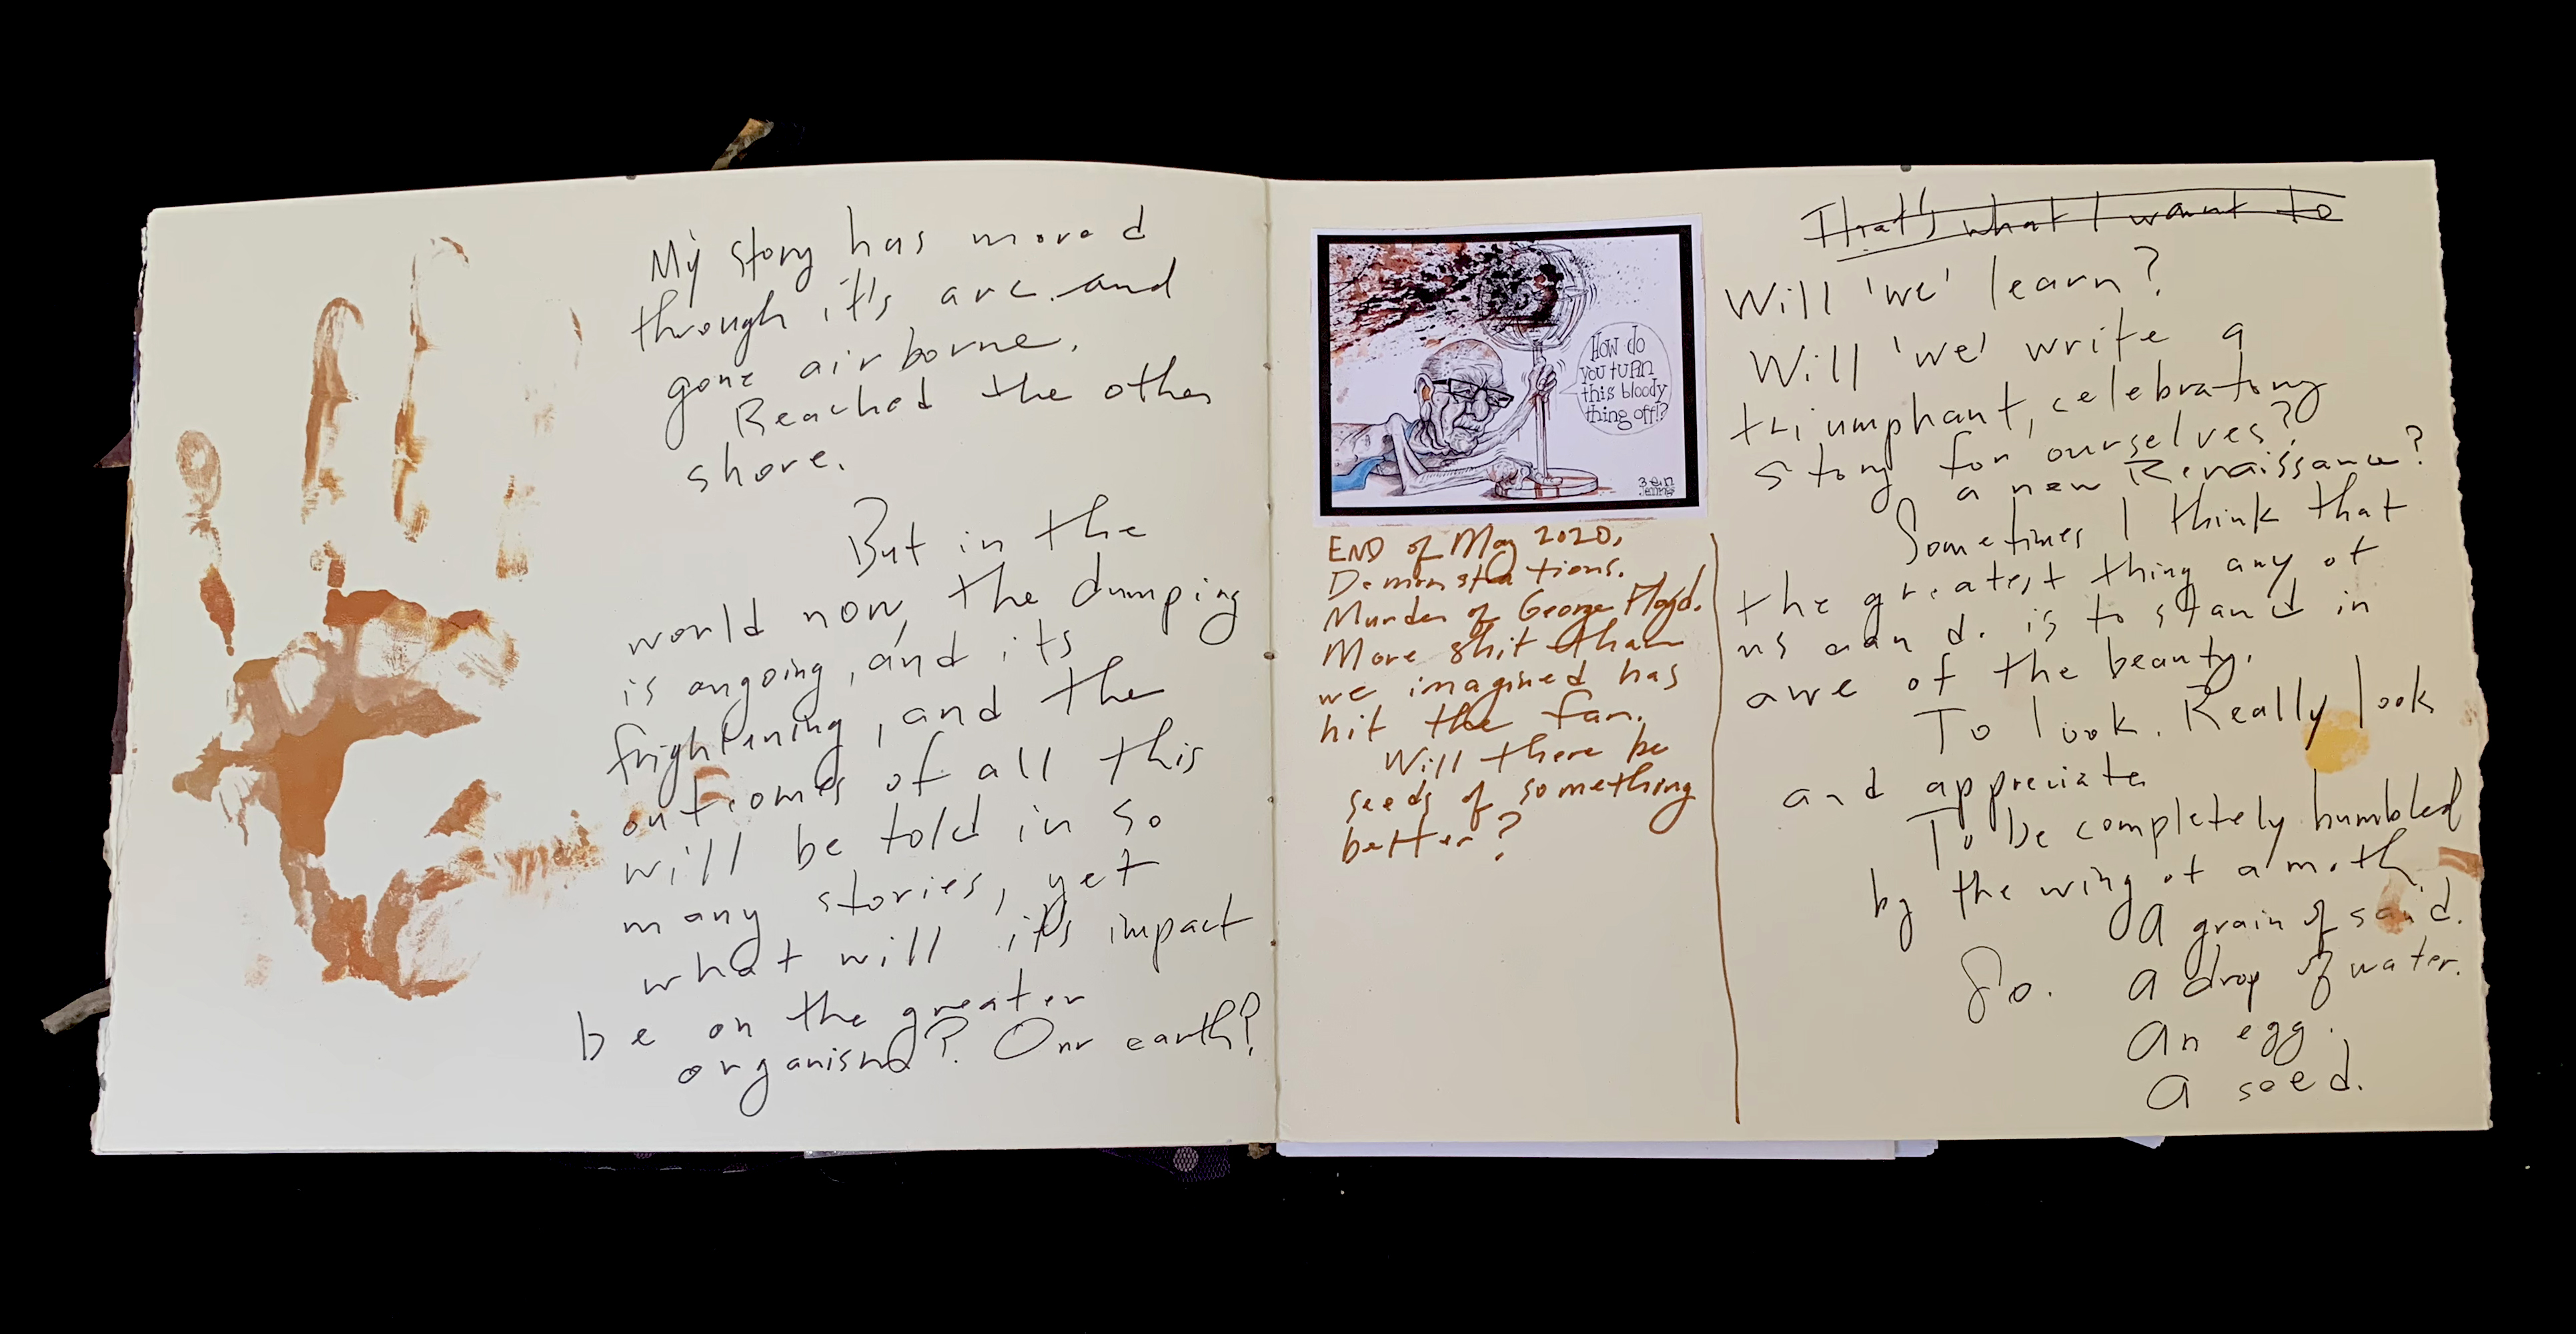 My story has moved
through it's arc and
gone airborne.
Reached the other
shore.
But in the
world now, the dumping
is ongoing, and its
frightening, and the
outcomes of all this
will be told in so
many stories, yet
what will it's impact
be on the greater
organism? Our earth?
How do
you turn
this bloody
thing off!?
Ben
Jennings
END of May 2020,
Demonstrations.
Murder of George Floyd.
More shit than
we imagined has
hit the fan.
Will there be
seeds of something
better?
That's what I want to
Will 'we' learn?
Will 'we' write a
triumphant, celebrating
story for ourselves?
a new Renaissance?
Sometimes I think that
the greatest thing any of
us can do. is to stand in
awe of the beauty.
To look. Really look
and appreciate
To be completely humbled
by the wing of a moth.
A grain of sand.
So. A drop of water.
An egg.
A seed.